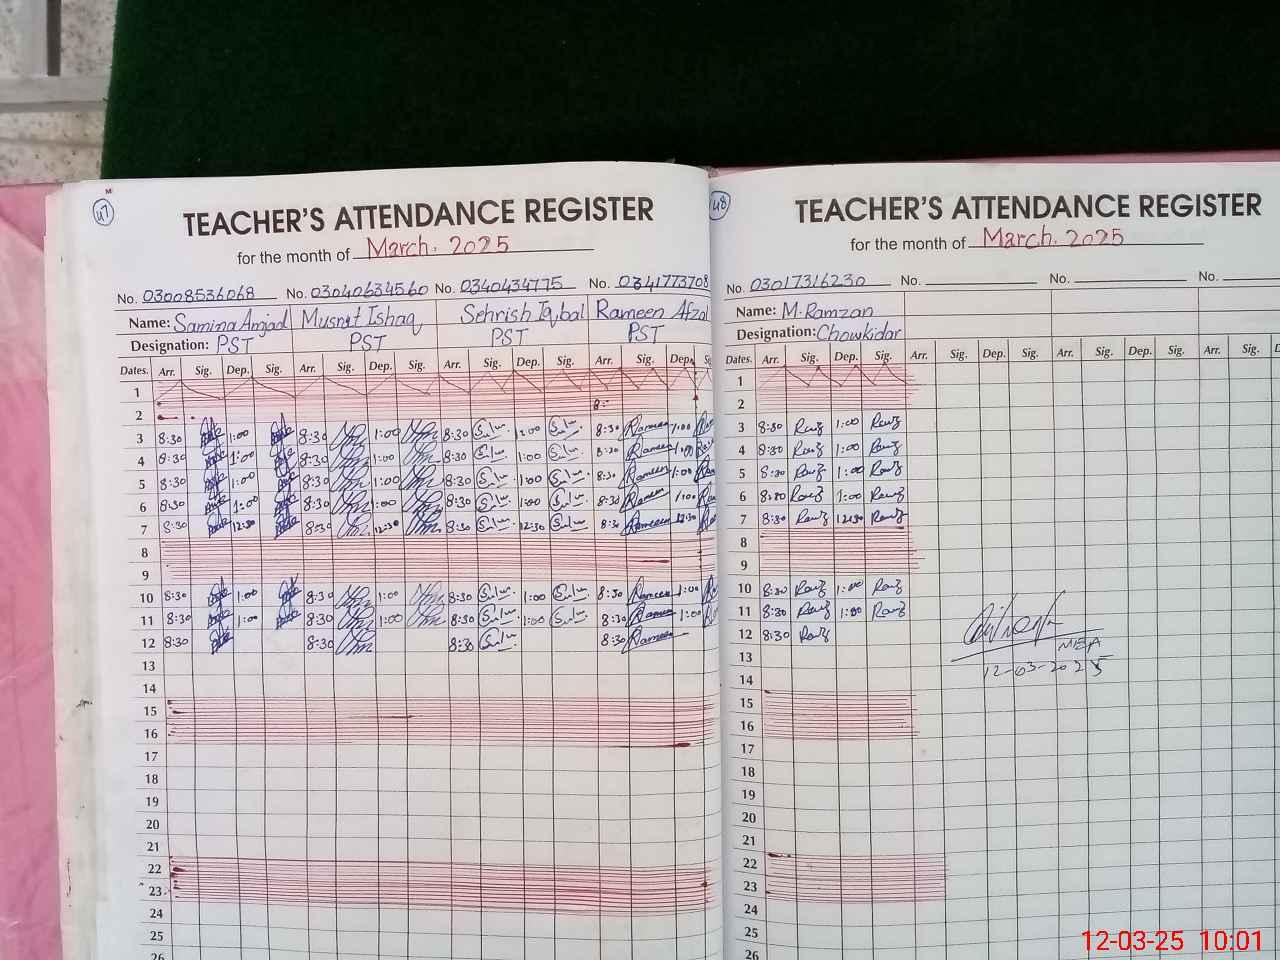 M
47
TEACHER'S ATTENDANCE REGISTER
for the month of March. 2025
No. 03008536068 No. 03040634560 No. 0340434775 No. 0341773708
Name: Samina Amjad Musrat Ishaq Sehrish Iqbal Rameen Afzal
Designation: PST PST PST PST
Dates. Arr. Sig. Dep. Sig. Arr. Sig. Dep. Sig. Arr. Sig. Dep. Sig. Arr. Sig. Dep.
1
2 8:
3 8:30 1:00 8:30 1:00 8:30 1:00 8:30 Rameen 1:00
4 8:30 1:00 8:30 1:00 8:30 1:00 8:30 Rameen 1:00
5 8:30 1:00 8:30 1:00 8:30 1:00 8:30 Rameen 1:00
6 8:30 1:00 8:30 1:00 8:30 1:00 8:30 Rameen 1:00
7 8:30 12:30 8:30 12:30 8:30 12:30 8:30 Rameen 12:30
8
9
10 8:30 1:00 8:30 1:00 8:30 1:00 8:30 Rameen 1:00
11 8:30 1:00 8:30 1:00 8:30 1:00 8:30 Rameen 1:00
12 8:30 8:30 8:30 8:30 Rameen
13
14
15
16
17
18
19
20
21
22
23
24
25
26
48
TEACHER'S ATTENDANCE REGISTER
for the month of March. 2025
No. 03017316230 No. No. No.
Name: M. Ramzan
Designation: Chowkidar
Dates. Arr. Sig. Dep. Sig. Arr. Sig. Dep. Sig. Arr. Sig. Dep. Sig. Arr. Sig.
1
2
3 8:30 1:00
4 8:30 1:00
5 8:30 1:00
6 8:30 1:00
7 8:30 12:30
8
9
10 8:30 1:00
11 8:30 1:00
12 8:30
MEA
12-03-2025
13
14
15
16
17
18
19
20
21
22
23
24
25
26
12-03-25 10:01